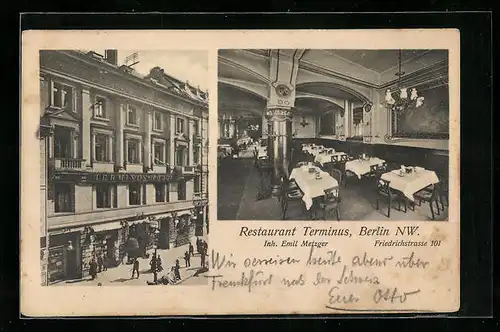 TERMINUS-HOTEL
Restaurant Terminus, Berlin NW.
Inh. Emil Metzger Friedrichstrasse 101
Wir verreisen heute abend über
Frankfurt nach der Schweiz
Euer Otto